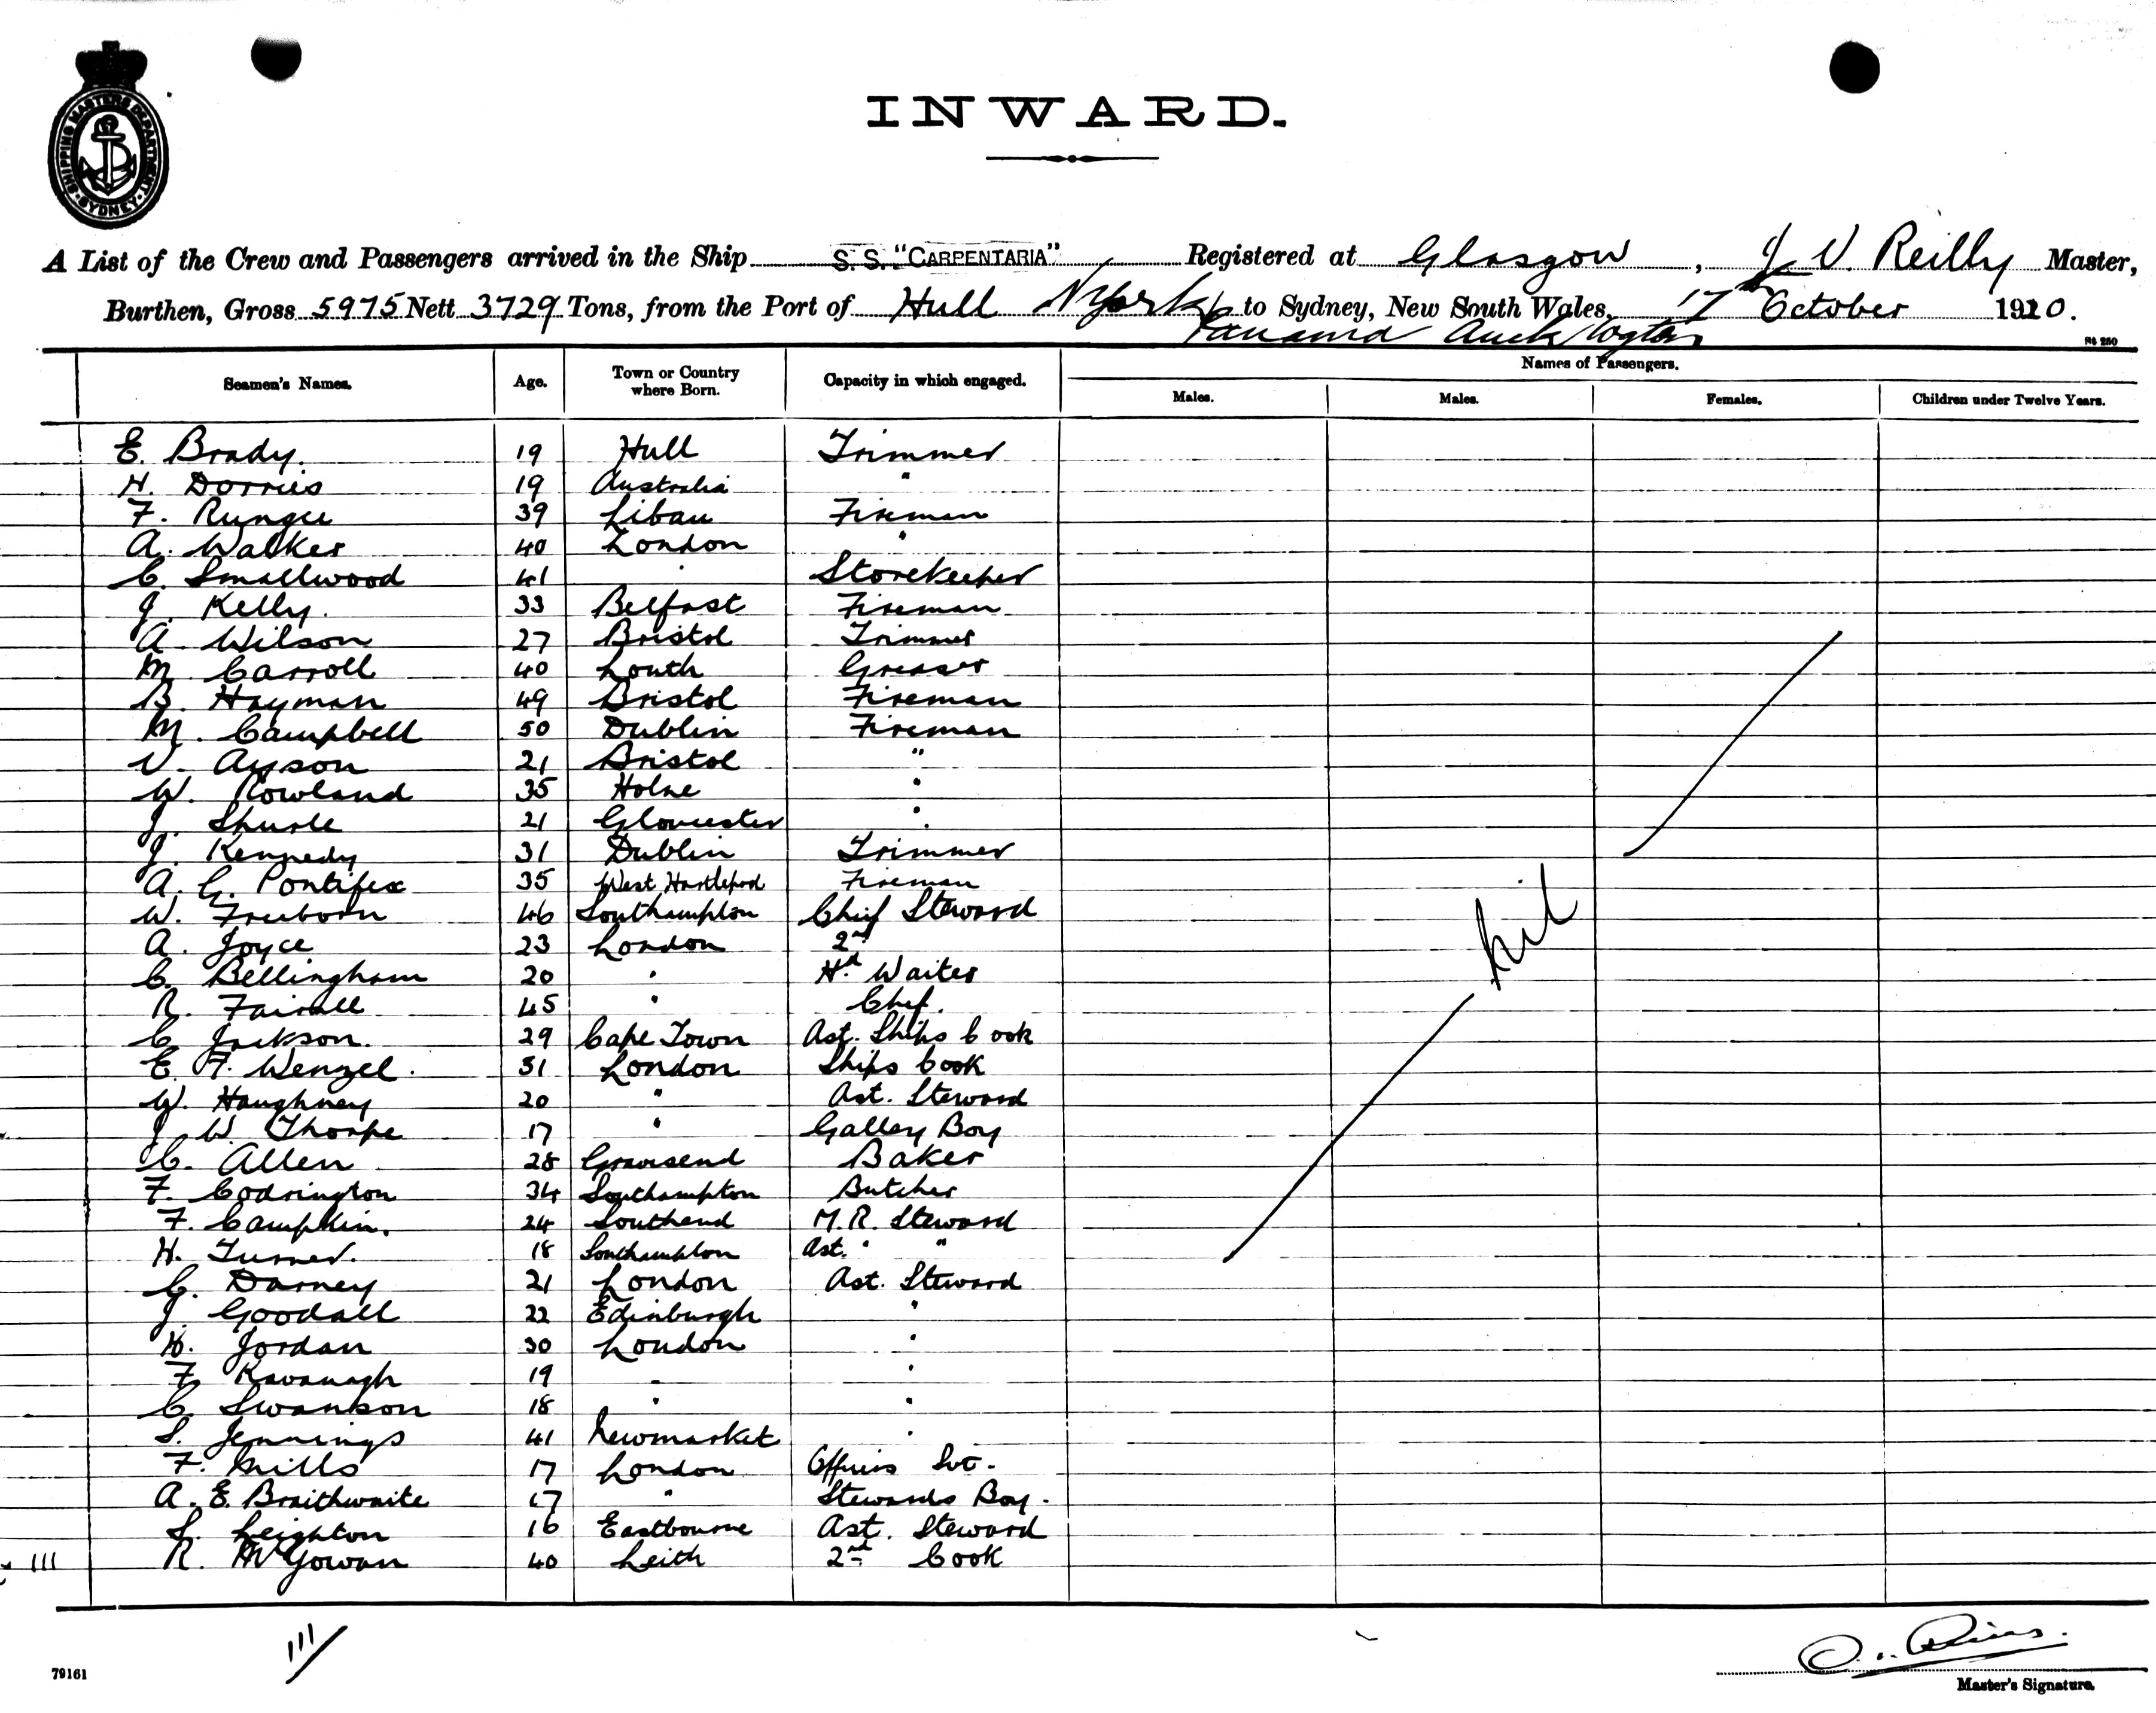 SHIPPING MASTERS DEPARTMENT SYDNEY
INWARD.
A List of the Crew and Passengers arrived in the Ship S. S. "CARPENTARIA" Registered at Glasgow, J V. Reilly Master,
Burthen, Gross 5975 Nett 3729 Tons, from the Port of Hull N York to Sydney, New South Wales, 17th October 1920.
Panama Auck Wgton
Seamen's Names. Age. Town or Country where Born. Capacity in which engaged. Names of Passengers.
Males. Males. Females. Children under Twelve Years.
E. Brady. 19 Hull Trimmer
H. Dorries 19 Australia "
F. Rungee 39 Libau Fireman
A. Walker 40 London "
C. Smallwood 41 " Storekeeper
J. Kelly. 33 Belfast Fireman
A. Wilson 27 Bristol Trimmer
M. Carroll 40 Louth Greaser
B. Hayman 49 Bristol Fireman
M. Campbell 50 Dublin Fireman
V. Ayson 21 Bristol "
W. Rowland 35 Holne "
J. 21 Gloucester "
J. Kennedy 31 Dublin Trimmer
A. G. Pontifex 35 West Hartlepool Fireman
W. Freeborn 46 Southampton Chief Steward
A. Joyce 23 London 2nd
C. Bellingham 20 " Hd Waiter
R. Fairall 45 " Chef.
C Jackson. 29 Cape Town Ast. Ships Cook
E. F. Wenzel. 31 London Ships Cook
W. Haughney 20 " Ast. Steward
J W. Thorpe 17 " Galley Boy
C. Allen 28 Gravesend Baker
F. Codrington 34 Southampton Butcher
F. Campkin. 24 Southend M.R. Steward
H. Turner. 18 Southampton Ast. " "
C. Darney 21 London Ast. Steward
J. Goodall 22 Edinburgh "
H. Jordan 30 London "
F. Kavanagh 19 " "
C. Swanson 18 " "
S. Jennings 41 Newmarket "
F. Mills 17 London Officers Svt.
A. E. Braithwaite 17 " Stewards Boy.
L. Leighton 16 Eastbourne Ast. Steward
111 R. McGowan 40 Leith 2nd Cook
Nil
111/
79161
Master's Signature.